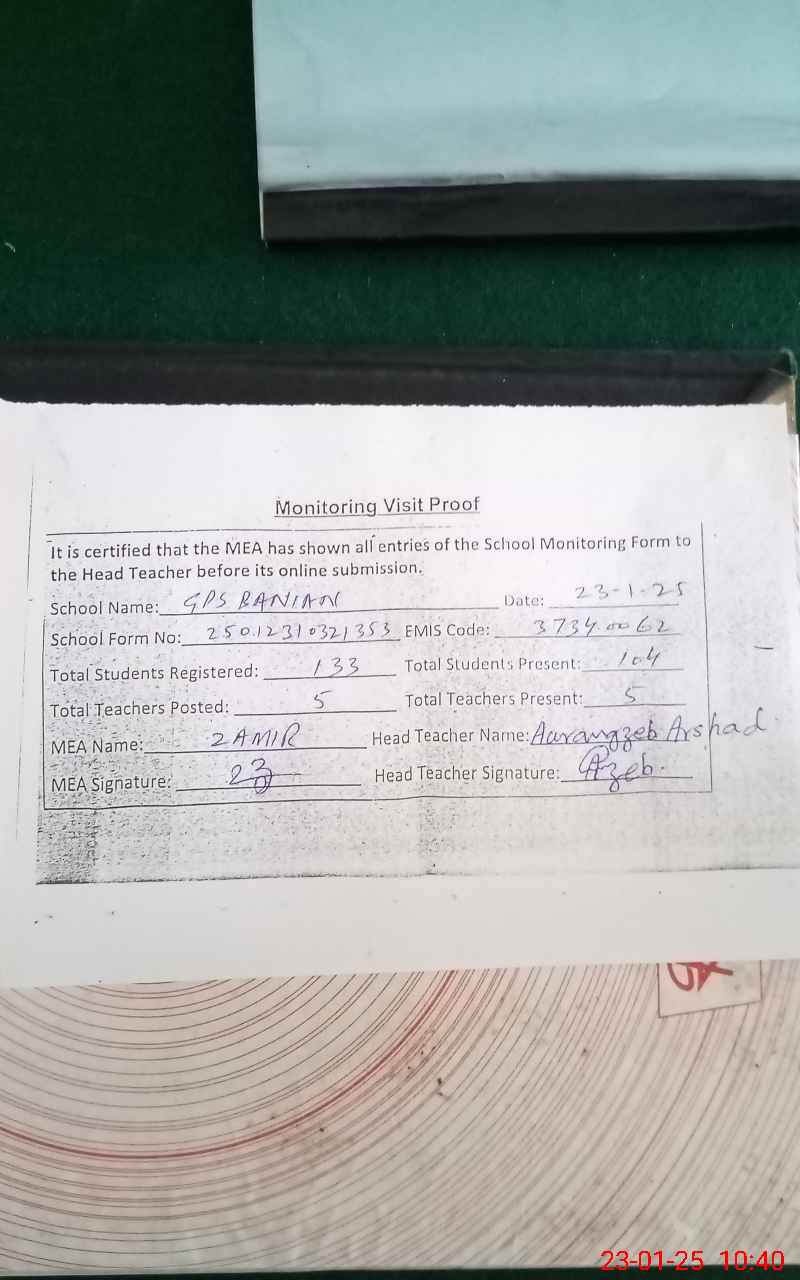 Monitoring Visit Proof
It is certified that the MEA has shown all entries of the School Monitoring Form to
the Head Teacher before its online submission.
School Name: GPS BANIAN Date: 23-1-25
School Form No: 25012310321353 EMIS Code: 37340062
Total Students Registered: 133 Total Students Present: 104
Total Teachers Posted: 5 Total Teachers Present: 5
MEA Name: ZAMIR Head Teacher Name: Aurangzeb Arshad
MEA Signature: Head Teacher Signature: Azeb.
23-01-25 10:40